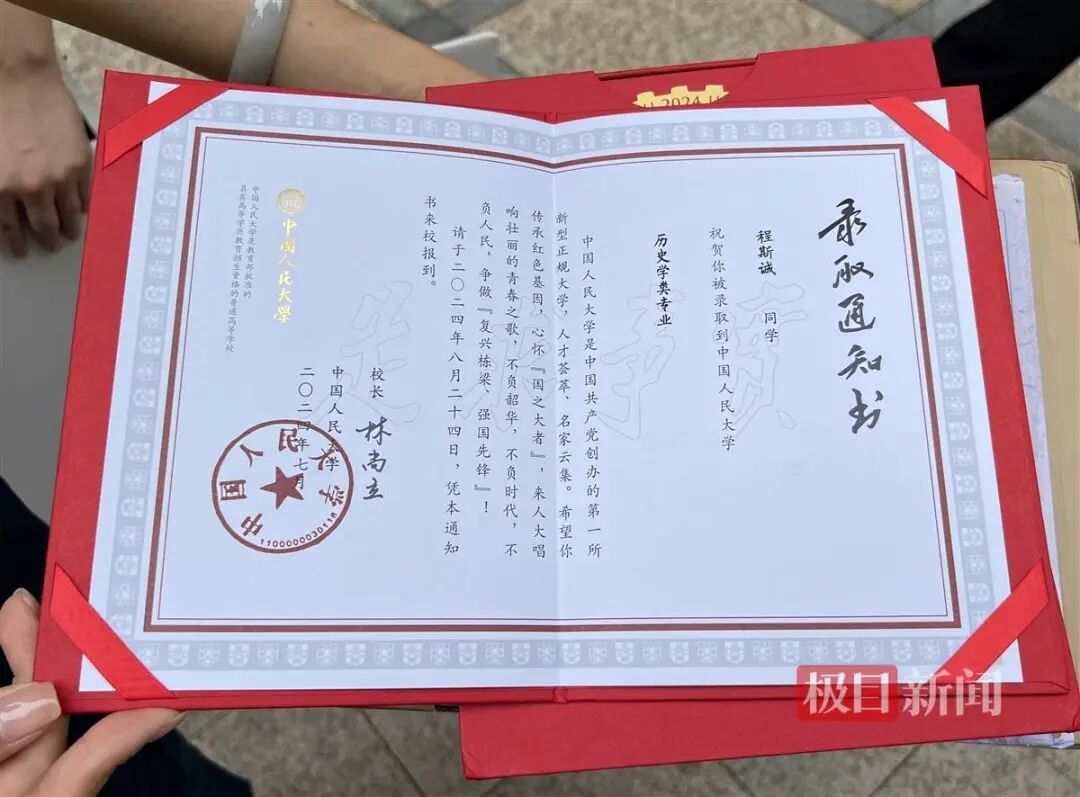 录取通知书
程斯诚 同学
祝贺你被录取到中国人民大学
历史学类专业
中国人民大学是中国共产党创办的第一所
新型正规大学，人才荟萃、名家云集。希望你
传承红色基因，心怀『国之大者』，来人大唱
响壮丽的青春之歌，不负韶华，不负时代，不
负人民，争做『复兴栋梁、强国先锋』！
请于二〇二四年八月二十四日，凭本通知
书来校报到。
校长 林尚立
中国人民大学
二〇二四年七月
中国人民大学
1100000030118
中国人民大学
中国人民大学是教育部批准的
具有高等学历教育招生资格的普通高等学校
实事求是
2024
极目新闻